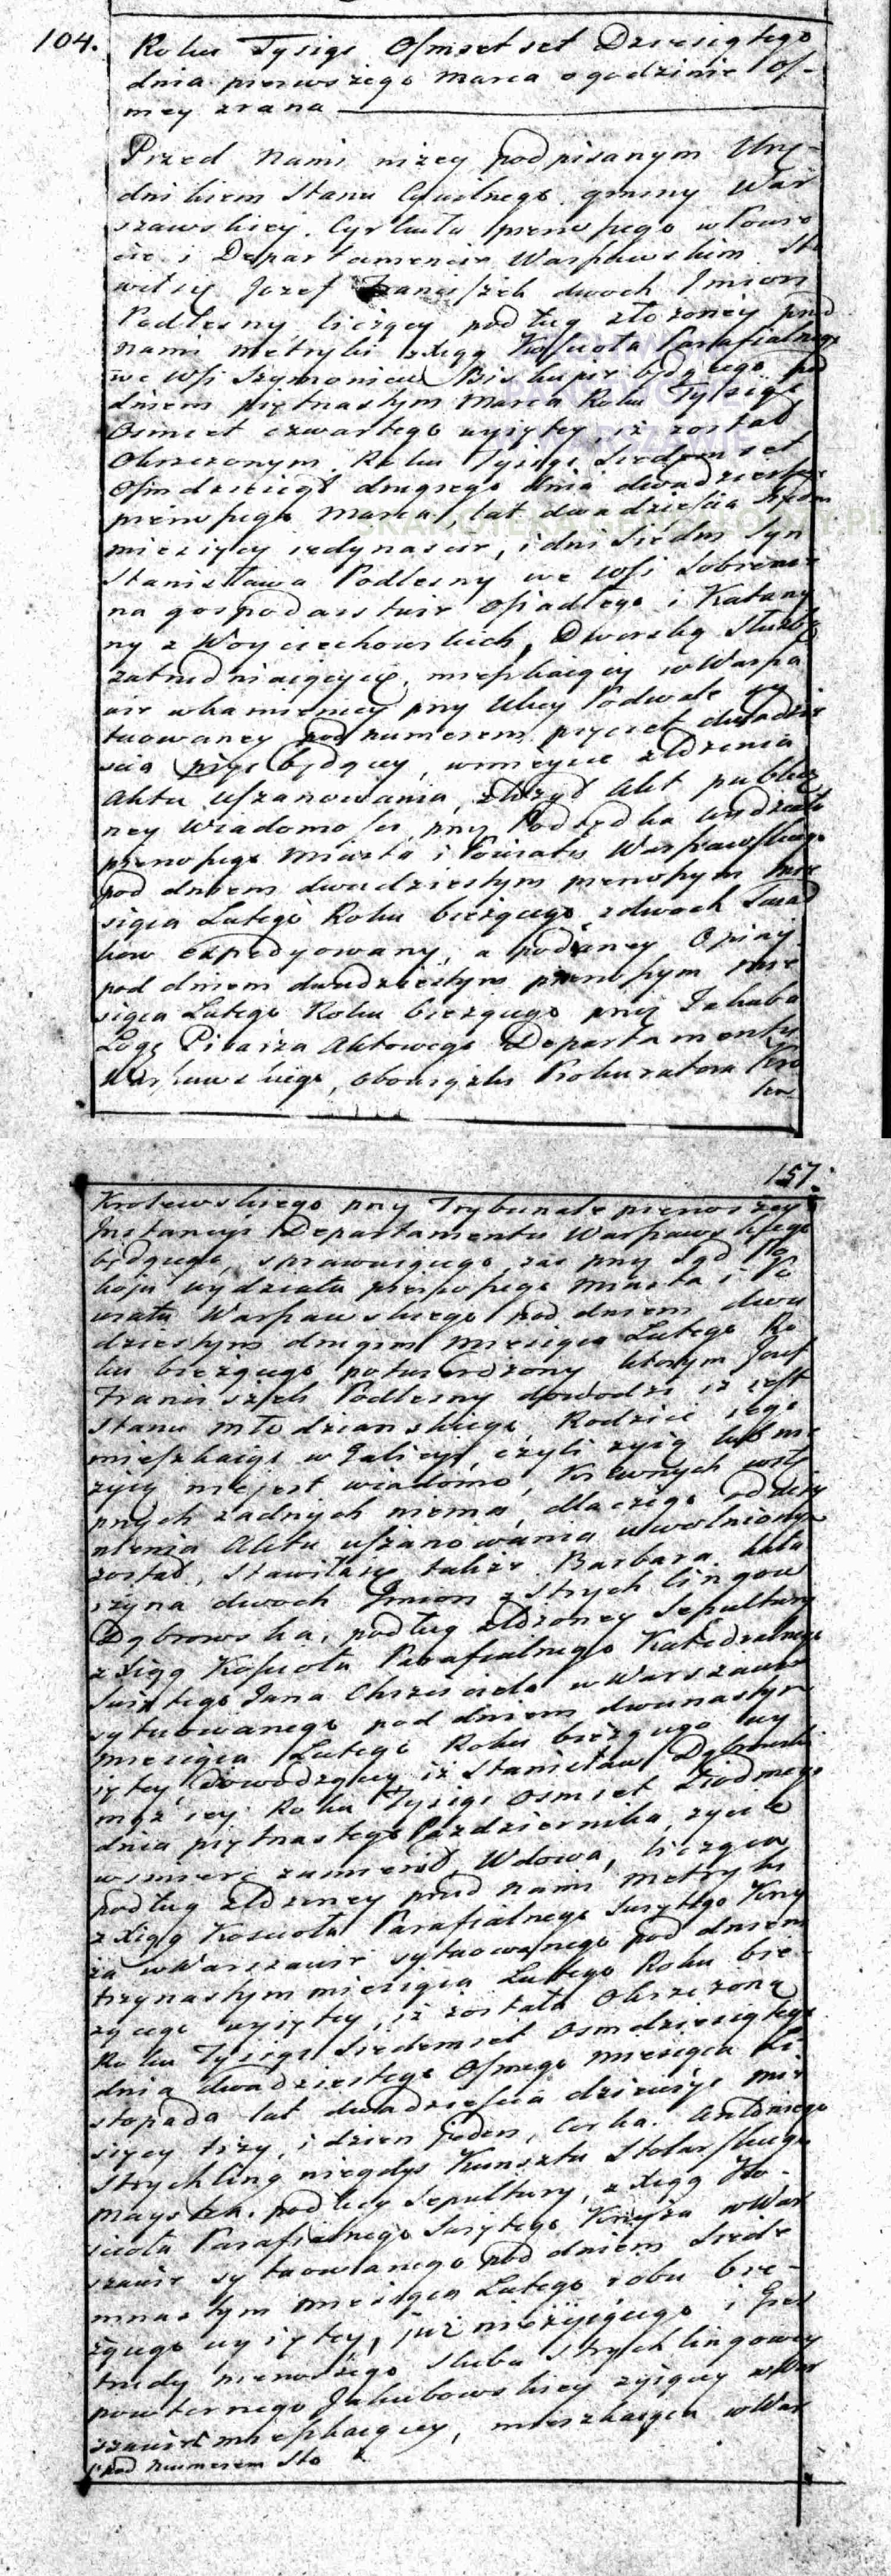 104.
Roku Tysiąc Osmset set Dziesiątego
dnia pierwszego Marca o godzinie Os-
mey zrana
Przed Nami niżey podpisanym Urzę-
dnikiem Stanu Cywilnego gminy War
szawskiey Cyrkułu pierwszego w Powie
cie i Departamencie Warszawskim Sta
wił się Jozef Franciszek dwoch Jmion
Podlesny liczący podług złożoney przed
nami metryki z Xiąg Kościoła Parafialnego
we Wsi Szymonicu Biskupie będącego pod
dniem piętnastym Marca Roku Tysiąc
Osmset czwartego wyiętey, iż został
Okrzczonym Roku Tysiąc Siedmset
Osmdziesiąt drugiego dnia dwudziestego
pierwszego Marca, lat dwadzieścia siedm
miesięcy iedynascie, i dni siedm Syn
Stanisława Podlesny we Wsi
na gospodarstwie Osiadłego i Katarzy
ny z Woyciechowskich, Dworską Służbą
zatrudniaiący się, mieszkaiący w Warsza
wie w kamienicy przy Ulicy Podwale sy
tuowaney pod numerem pięćset dwadzie
ścia będący, w mieysce złożenia
Aktu Uszanowania, złożył Akt publicz
ney Wiadomości przy Podsędka Wydziału
pierwszego Miasta i Powiatu Warszawskiego
pod dniem dwudziestym pierwszym mie
siąca Lutego Roku bieżącego z dwoch Świad
kow expedyowany, a podaney Opinij
pod dniem dwudziestym pierwszym mie
siąca Lutego Roku bieżącego przez Jakuba
Pisarza Aktowego Departamentu
Warszawskiego, obowiązki Prokuratora Kro
lew
157.
Krolewskiego przy Trybunale pierwszey
Instancyi Departamentu Warszawskiego
będącego, sprawuiącego zas przy Sąd Po
koju wydziału pierwszego Miasta i Po
wiatu Warszawskiego pod dniem dwu
dziestym drugim miesiąca Lutego Ro
ku bieżącego potwierdzony ktorym Jozef
Franciszek Podlesny dowodzi iż iest
Stanu młodzianskiego, Rodzice iego
mieszkaiąc w Galicyi, czyli żyią lub nie
żyią nie jest wiadomo, Krewnych wstę
pnych żadnych niema, dlaczego od czy
nienia Aktu uszanowania uwolniony
został, Stawiła się także Barbara Kata
rzyna dwoch Jmion z Strychlingow
Dąbrowska, podług złożoney Sepultury
z Xiąg Kościoła Parafialnego Katedralnego
Świętego Jana Chrzciciela w Warszawie
sytuowanego pod dniem dwunastym
miesiąca Lutego Roku bieżącego wy
iętey, dowodzącey iż Stanisław Dąbrowski
mąż iey Roku Tysiąc Osmset Siodmego
dnia piętnastego Pazdziernika, życie
w smierć zamienił, Wdowa, licząca
podług złożoney przed nami Metryki
z Xiąg Kościoła Parafialnego Świętego Krzy
ża w Warszawie sytuowanego pod dniem
trzynastym miesiąca Lutego Roku bie-
żącego wyiętey, iż została Okrzczona
Roku Tysiąc Siedemset Osmdziesiątego
dnia dwudziestego Osmego miesiąca Li
stopada lat dwadzieścia dziewięć mie
sięcy trzy, i dzien jeden, Corka Antoniego
Strychling niegdys Kunsztu Stolarskiego
Maystra, podług Sepultury, z Xiąg Ko-
ścioła Parafialnego Świętego Krzyża w War
szawie sytuowanego pod dniem siede
mnastym miesiąca Lutego roku bie-
żącego wyiętey, już nieżyiącego i Ger
trudy pierwszego slubu Strychlingowey
powtornego Jakubowskiey żyiącey w War
szawie mieszkaiącey, mieszkaiąca w War
pod Numerem Sto